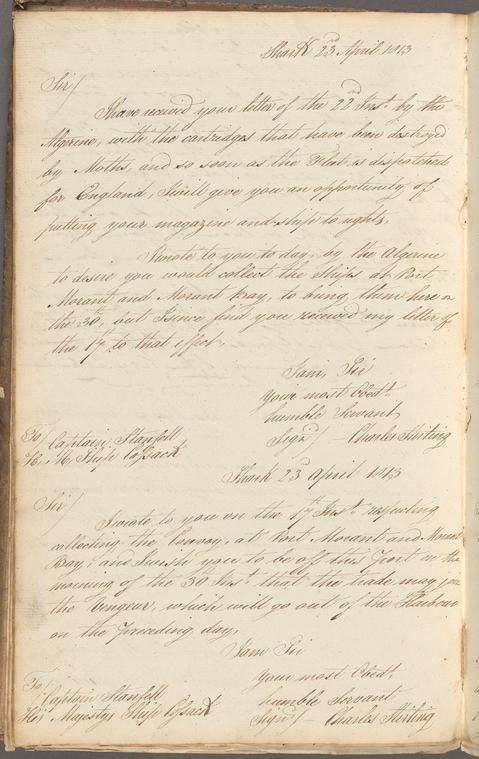 Shark 23rd April 1813
Sir/
I have received your letter of the 22nd Inst. by the
Algerine, with the cartridges that have been destroyed
by Moths, and so soon as the Fleet is dispatched
for England, I will give you an opportunity of
putting your magazine and ship to rights,
I wrote to you to day, by the Algerine
to desire you would collect the Ships at Port
Morant and Morant Bay, to bring them here on
the 30, but I since find you received my letter of
the 17 to that effect,
I am, Sir
Your most Obedt.
humble Servant
Signd/ - Charles Stirling
To/ Captain Stanfell
H. M. Ship Cossack
Shark 23d April 1813
Sir/
I wrote to you on the 17th Inst. respecting
collecting the Convoy, at Port Morant and Morant
Bay, and I wish you to be off this Port in the
morning of the 30 Inst. that the trade may join
the Vengeur, which will go out of the Harbour
on the preceding day,
I am Sir
Your most Obedt.
humble Servant
Signd/ - Charles Stirling
To/ Captain Stanfell
His Majestys Ship Cossack